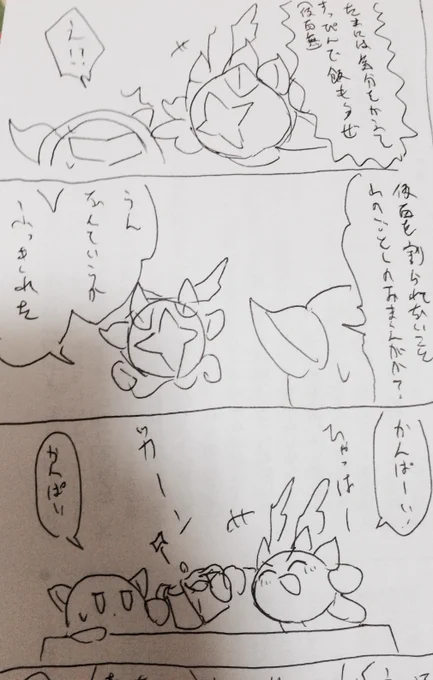 たまには気分をかえて
すっぴんで飯もらせ
(仮面無)
え!!
仮面を割られないことを
わのごとしかあまらんがか?
うん
なんていうか
ふっきれた
かんぱーい!
ひゃっはー
ッカーン
かんぱい